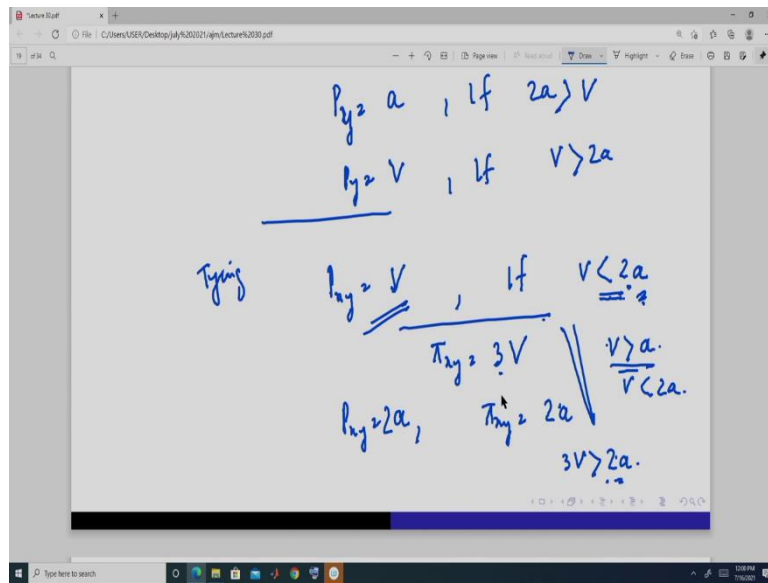 "Lecture 30.pdf
File | C:/Users/USER/Desktop/july%202021/ajm/Lecture%2030.pdf
19 of 34
Page view | Read aloud Draw Highlight Erase
Py = a , If 2a > V
Py = V , If V > 2a
Tying Pxy = V , If V < 2a
πxy = 3V V > a.
V < 2a.
Pxy = 2a, πxy = 2a
3V > 2a.
Type here to search
12:08 PM
7/16/2021